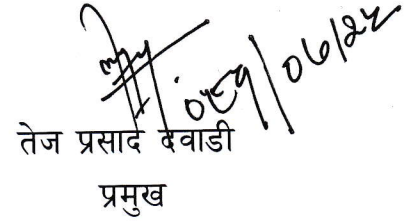 ०८१/०७/२५
तेज प्रसाद दवाडी
प्रमुख